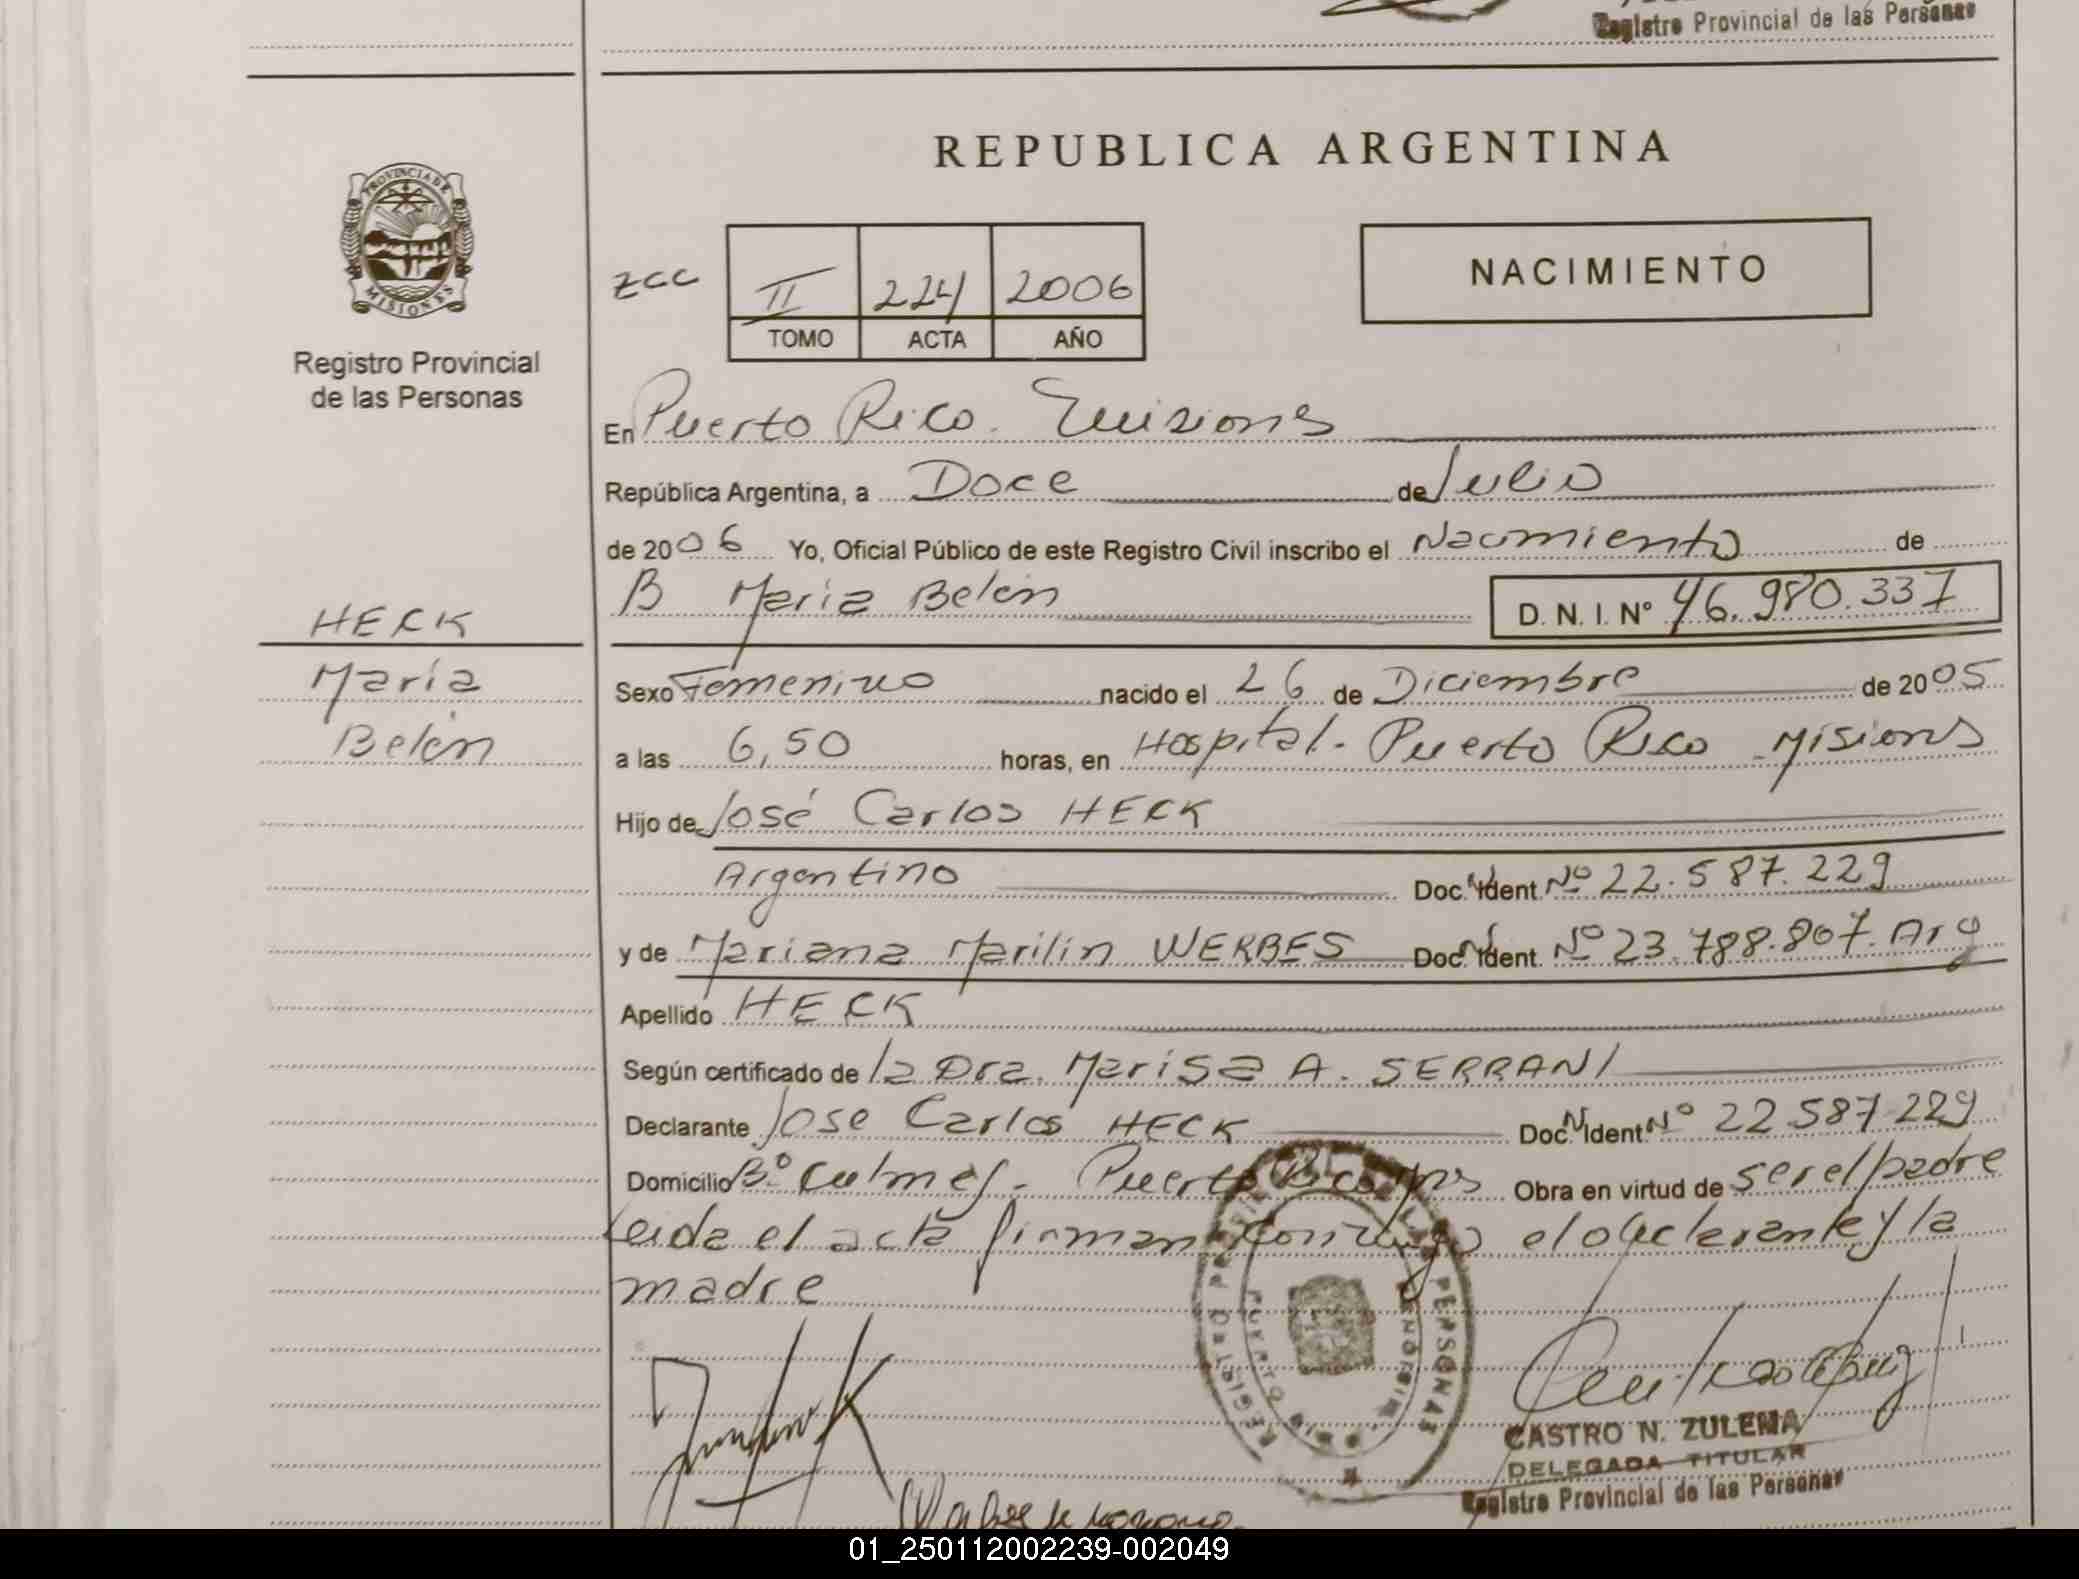 Registro Provincial de las Personas
REPUBLICA ARGENTINA
PROVINCIA DE MISIONES
Registro Provincial
de las Personas
NACIMIENTO
zcc II 224 2006
TOMO ACTA AÑO
En Puerto Rico. Misiones
República Argentina, a Doce de Julio
de 2006 Yo, Oficial Público de este Registro Civil inscribo el Nacimiento de
B María Belén D. N. I. Nº 46.980.337
HECK
María
Belén
Sexo Femenino nacido el 26 de Diciembre de 2005
a las 6,50 horas, en Hospital. Puerto Rico Misiones
Hijo de José Carlos HECK
Argentino Doc. Ident. Nº 22.587.229
y de Mariana Marilin WERBES Doc. Ident. Nº 23.788.807. Arg
Apellido HECK
Según certificado de la Dra. Marisa A. SERRANI
Declarante Jose Carlos HECK Doc. Ident. Nº 22 587 229
Domicilio Bº Culmey. Puerto Rico Mns Obra en virtud de ser el padre
Leida el acta firman conmigo el declarante y la
madre
REGISTRO PERSONAS PUERTO
CASTRO N. ZULEMA
DELEGADA TITULAR
Registro Provincial de las Personas
01_250112002239-002049